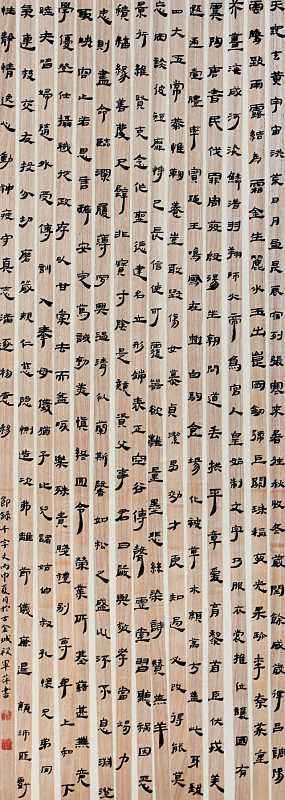 天地玄黃宇宙洪荒日月盈昃辰宿列張寒來暑往秋收冬藏閏餘成歲律呂調陽
雲騰致雨露結為霜金生麗水玉出崑岡劍號巨闕珠稱夜光果珍李柰菜重
芥薑海咸河淡鱗潛羽翔龍師火帝鳥官人皇始制文字乃服衣裳推位讓國有
虞陶唐弔民伐罪周發殷湯坐朝問道垂拱平章愛育黎首臣伏戎羌
遐邇壹體率賓歸王鳴鳳在樹白駒食場化被草木賴及萬方蓋此身髮
四大五常恭惟鞠養豈敢毀傷女慕貞潔男效才良知過必改得能莫
忘罔談彼短靡恃己長信使可覆器欲難量墨悲絲染詩讚羔羊
景行維賢克念作聖德建名立形端表正空谷傳聲虛堂習聽禍因惡
積福緣善慶尺璧非寶寸陰是競資父事君曰嚴與敬孝當竭力
忠則盡命臨深履薄夙興溫凊似蘭斯馨如松之盛川流不息淵澄
取映容止若思言辭安定篤初誠美慎終宜令榮業所基籍甚無竟
學優登仕攝職從政存以甘棠去而益詠樂殊貴賤禮別尊卑上和下
睦夫唱婦隨外受傅訓入奉母儀猶子比兒諸姑伯叔孔懷兄弟同
氣連枝交友投分切磨箴規仁慈隱惻造次弗離節義廉退顛沛匪虧
性靜情逸心動神疲守真志滿逐物意移
節錄千字文丙申夏月於古金城 軍 書